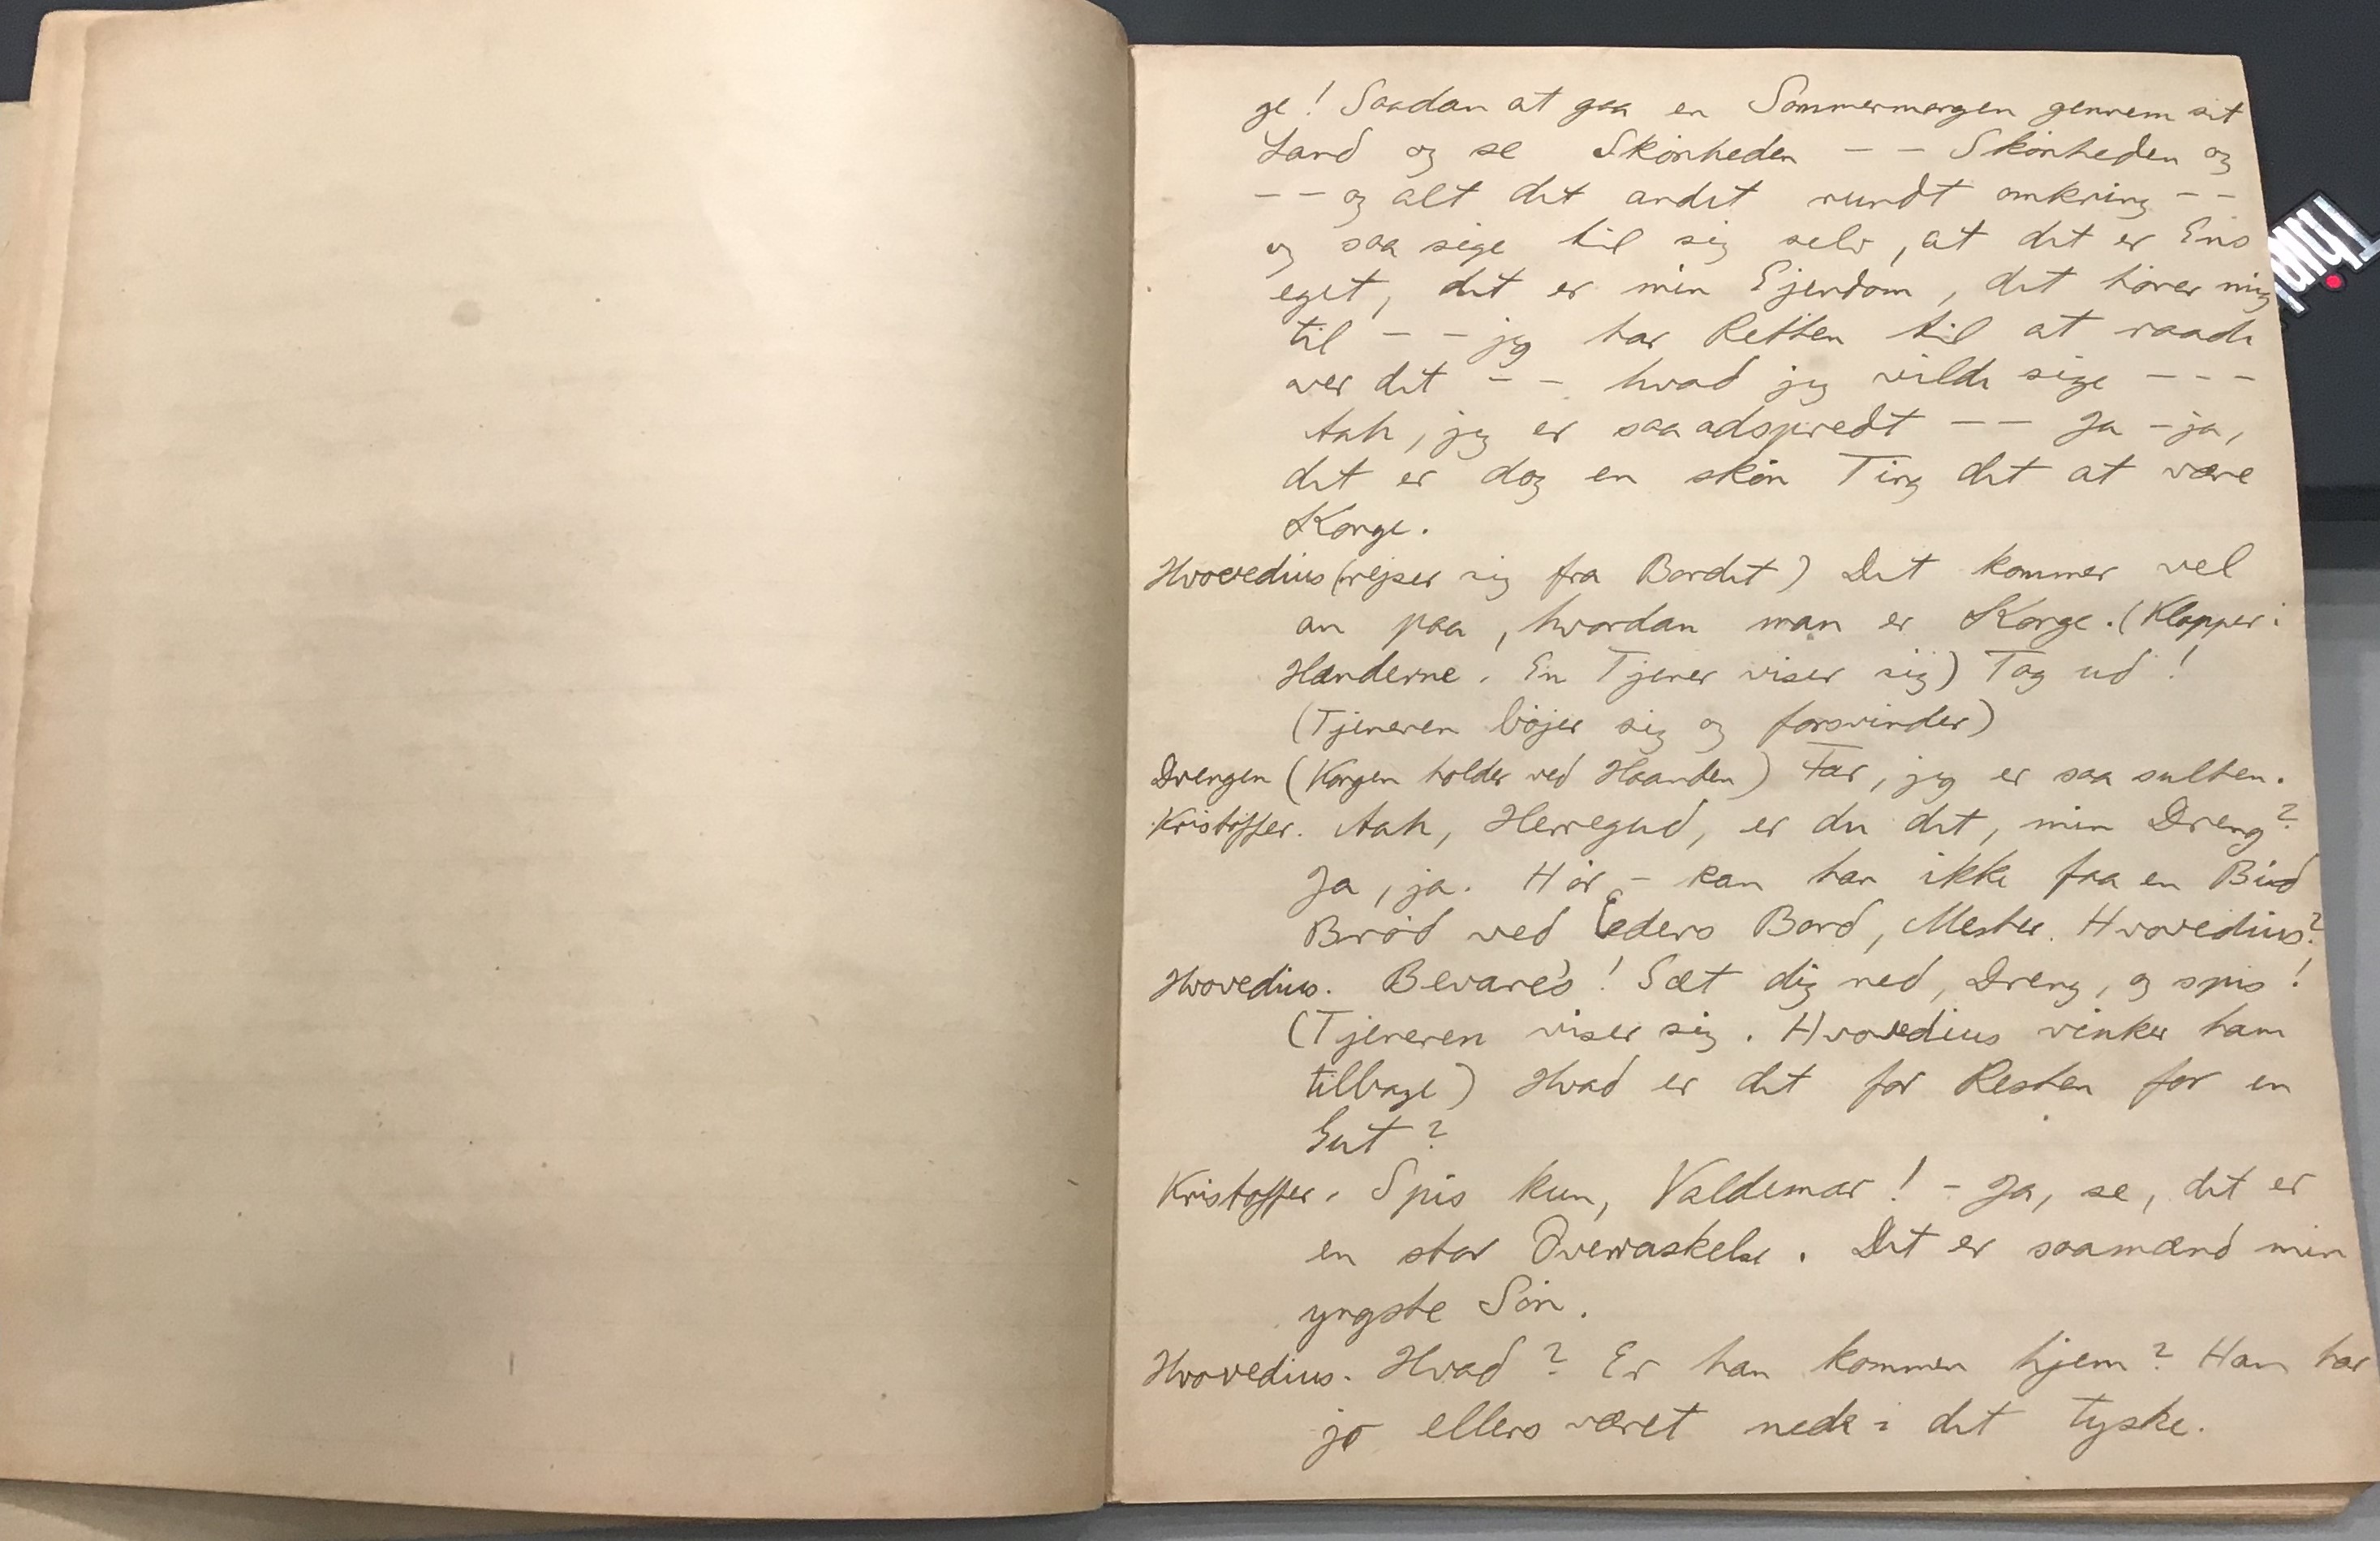 ge! Saadan at gaa en Sommermorgen gennem sit
Land og se Skønheden – – Skønheden og
– – og alt det andet rundt omkring – –
og saa sige til sig selv, at det er Ens
eget, det er min Ejendom, det hører mig
til – – jeg har Retten til at raade
over det – – hvad jeg vilde sige – – –
Aah, jeg er saa adspredt – – Ja – ja,
det er dog en skøn Ting det at være
Konge.
Hvovedius (rejser sig fra Bordet) Det kommer vel
an paa, hvordan man er Konge. (Klapper i
Hænderne. En Tjener viser sig) Tag ud!
(Tjeneren bøjer sig og forsvinder)
Drengen (Kongen holder ved Haanden) Far, jeg er saa sulten.
Kristoffer. Aah, Herregud, er du det, min Dreng?
Ja, ja. Hør – kan han ikke faa en Bid
Brød ved Eders Bord, Mester Hvovedius?
Hvovedius. Bevare's! Sæt dig ned, Dreng, og spis!
(Tjeneren viser sig. Hvovedius vinker ham
tilbage) Hvad er det for Resten for en
Gut?
Kristoffer. Spis kun, Valdemar! – Ja, se, det er
en stor Overraskelse. Det er saamænd min
yngste Søn.
Hvovedius. Hvad? Er han kommen hjem? Han har
jo ellers været nede i det tyske.